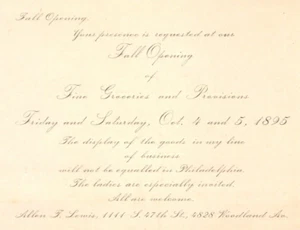 Fall Opening.
Your presence is requested at our
Fall Opening
of
Fine Groceries and Provisions
Friday and Saturday, Oct. 4 and 5, 1895
The display of the goods in my line
of business
will not be equalled in Philadelphia
The ladies are especially invited.
All are welcome.
Allen F. Lewis, 1111 S. 47th St., 4828 Woodland Av.